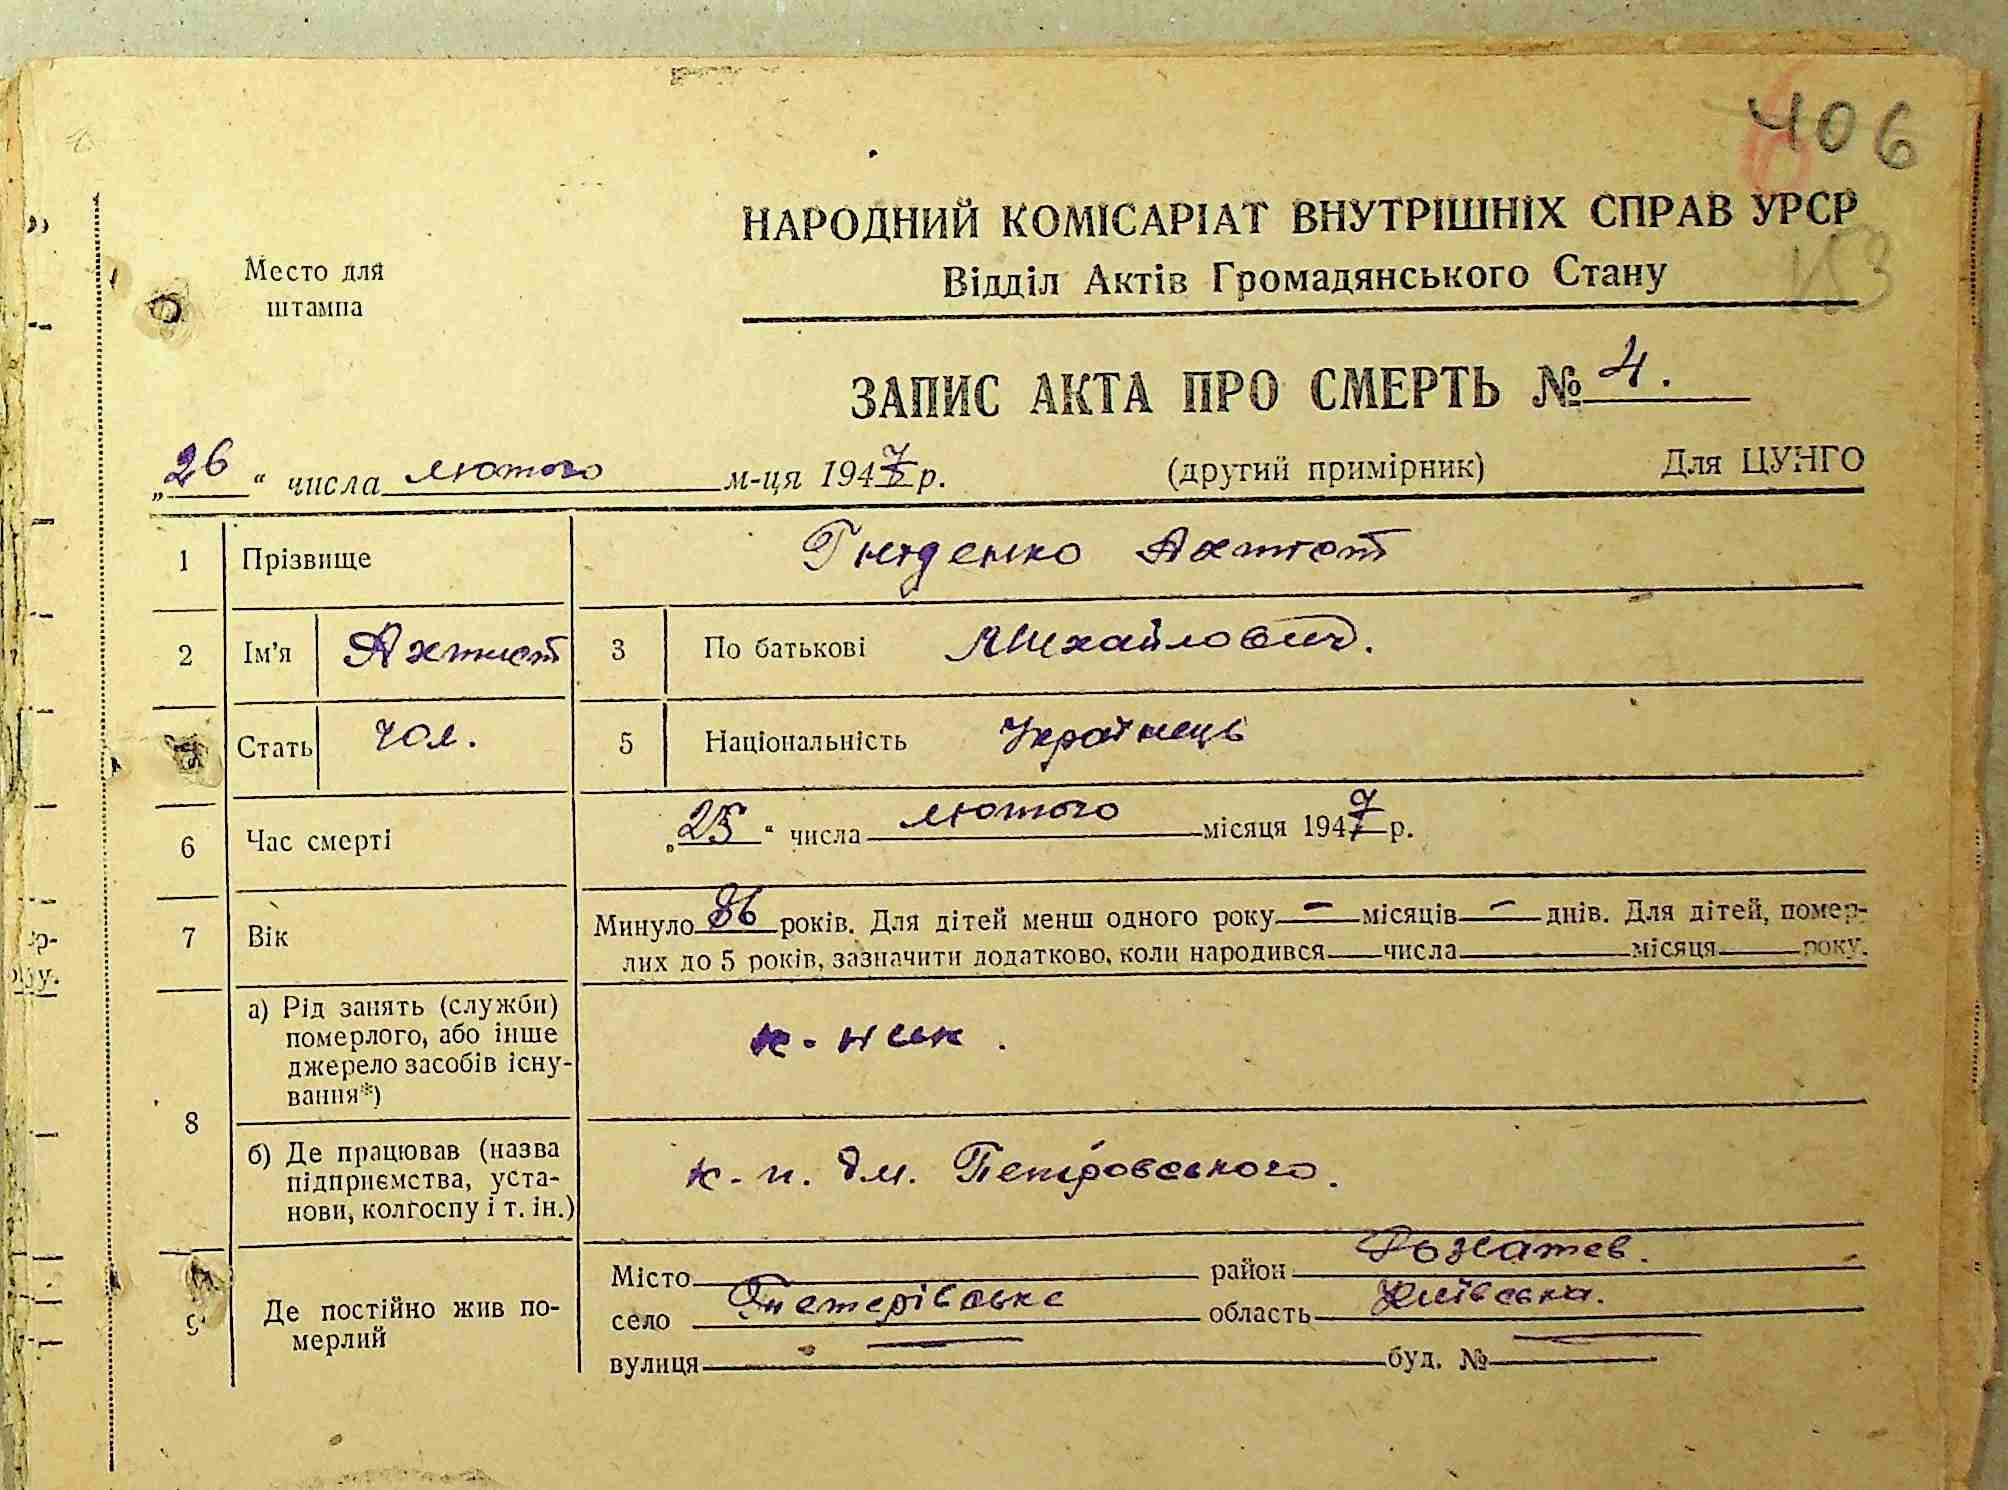 406
153
НАРОДНИЙ КОМІСАРІАТ ВНУТРІШНІХ СПРАВ УРСР
Відділ Актів Громадянського Стану
Место для
штампа
ЗАПИС АКТА ПРО СМЕРТЬ № 4.
„26“ числа лютого м-ця 1947 р. (другий примірник) Для ЦУНГО
1 Прізвище Гнїденко Ахтист
2 Ім'я Ахтист 3 По батькові Михайлович.
Стать чол. 5 Національність Українець
6 Час смерті „25“ числа лютого місяця 1947 р.
7 Вік Минуло 86 років. Для дітей менш одного року — місяців — днів. Для дітей, помер-
лих до 5 років, зазначити додатково, коли народився числа місяця року.
8 а) Рід занять (служби)
померлого, або інше
джерело засобів існу-
вання*)
к-ник.
б) Де працював (назва
підприємства, уста-
нови, колгоспу і т. ін.)
к-п. ім. Петровського.
9 Де постійно жив по-
мерлий
Місто район Розважев.
село область Київська.
вулиця буд. №